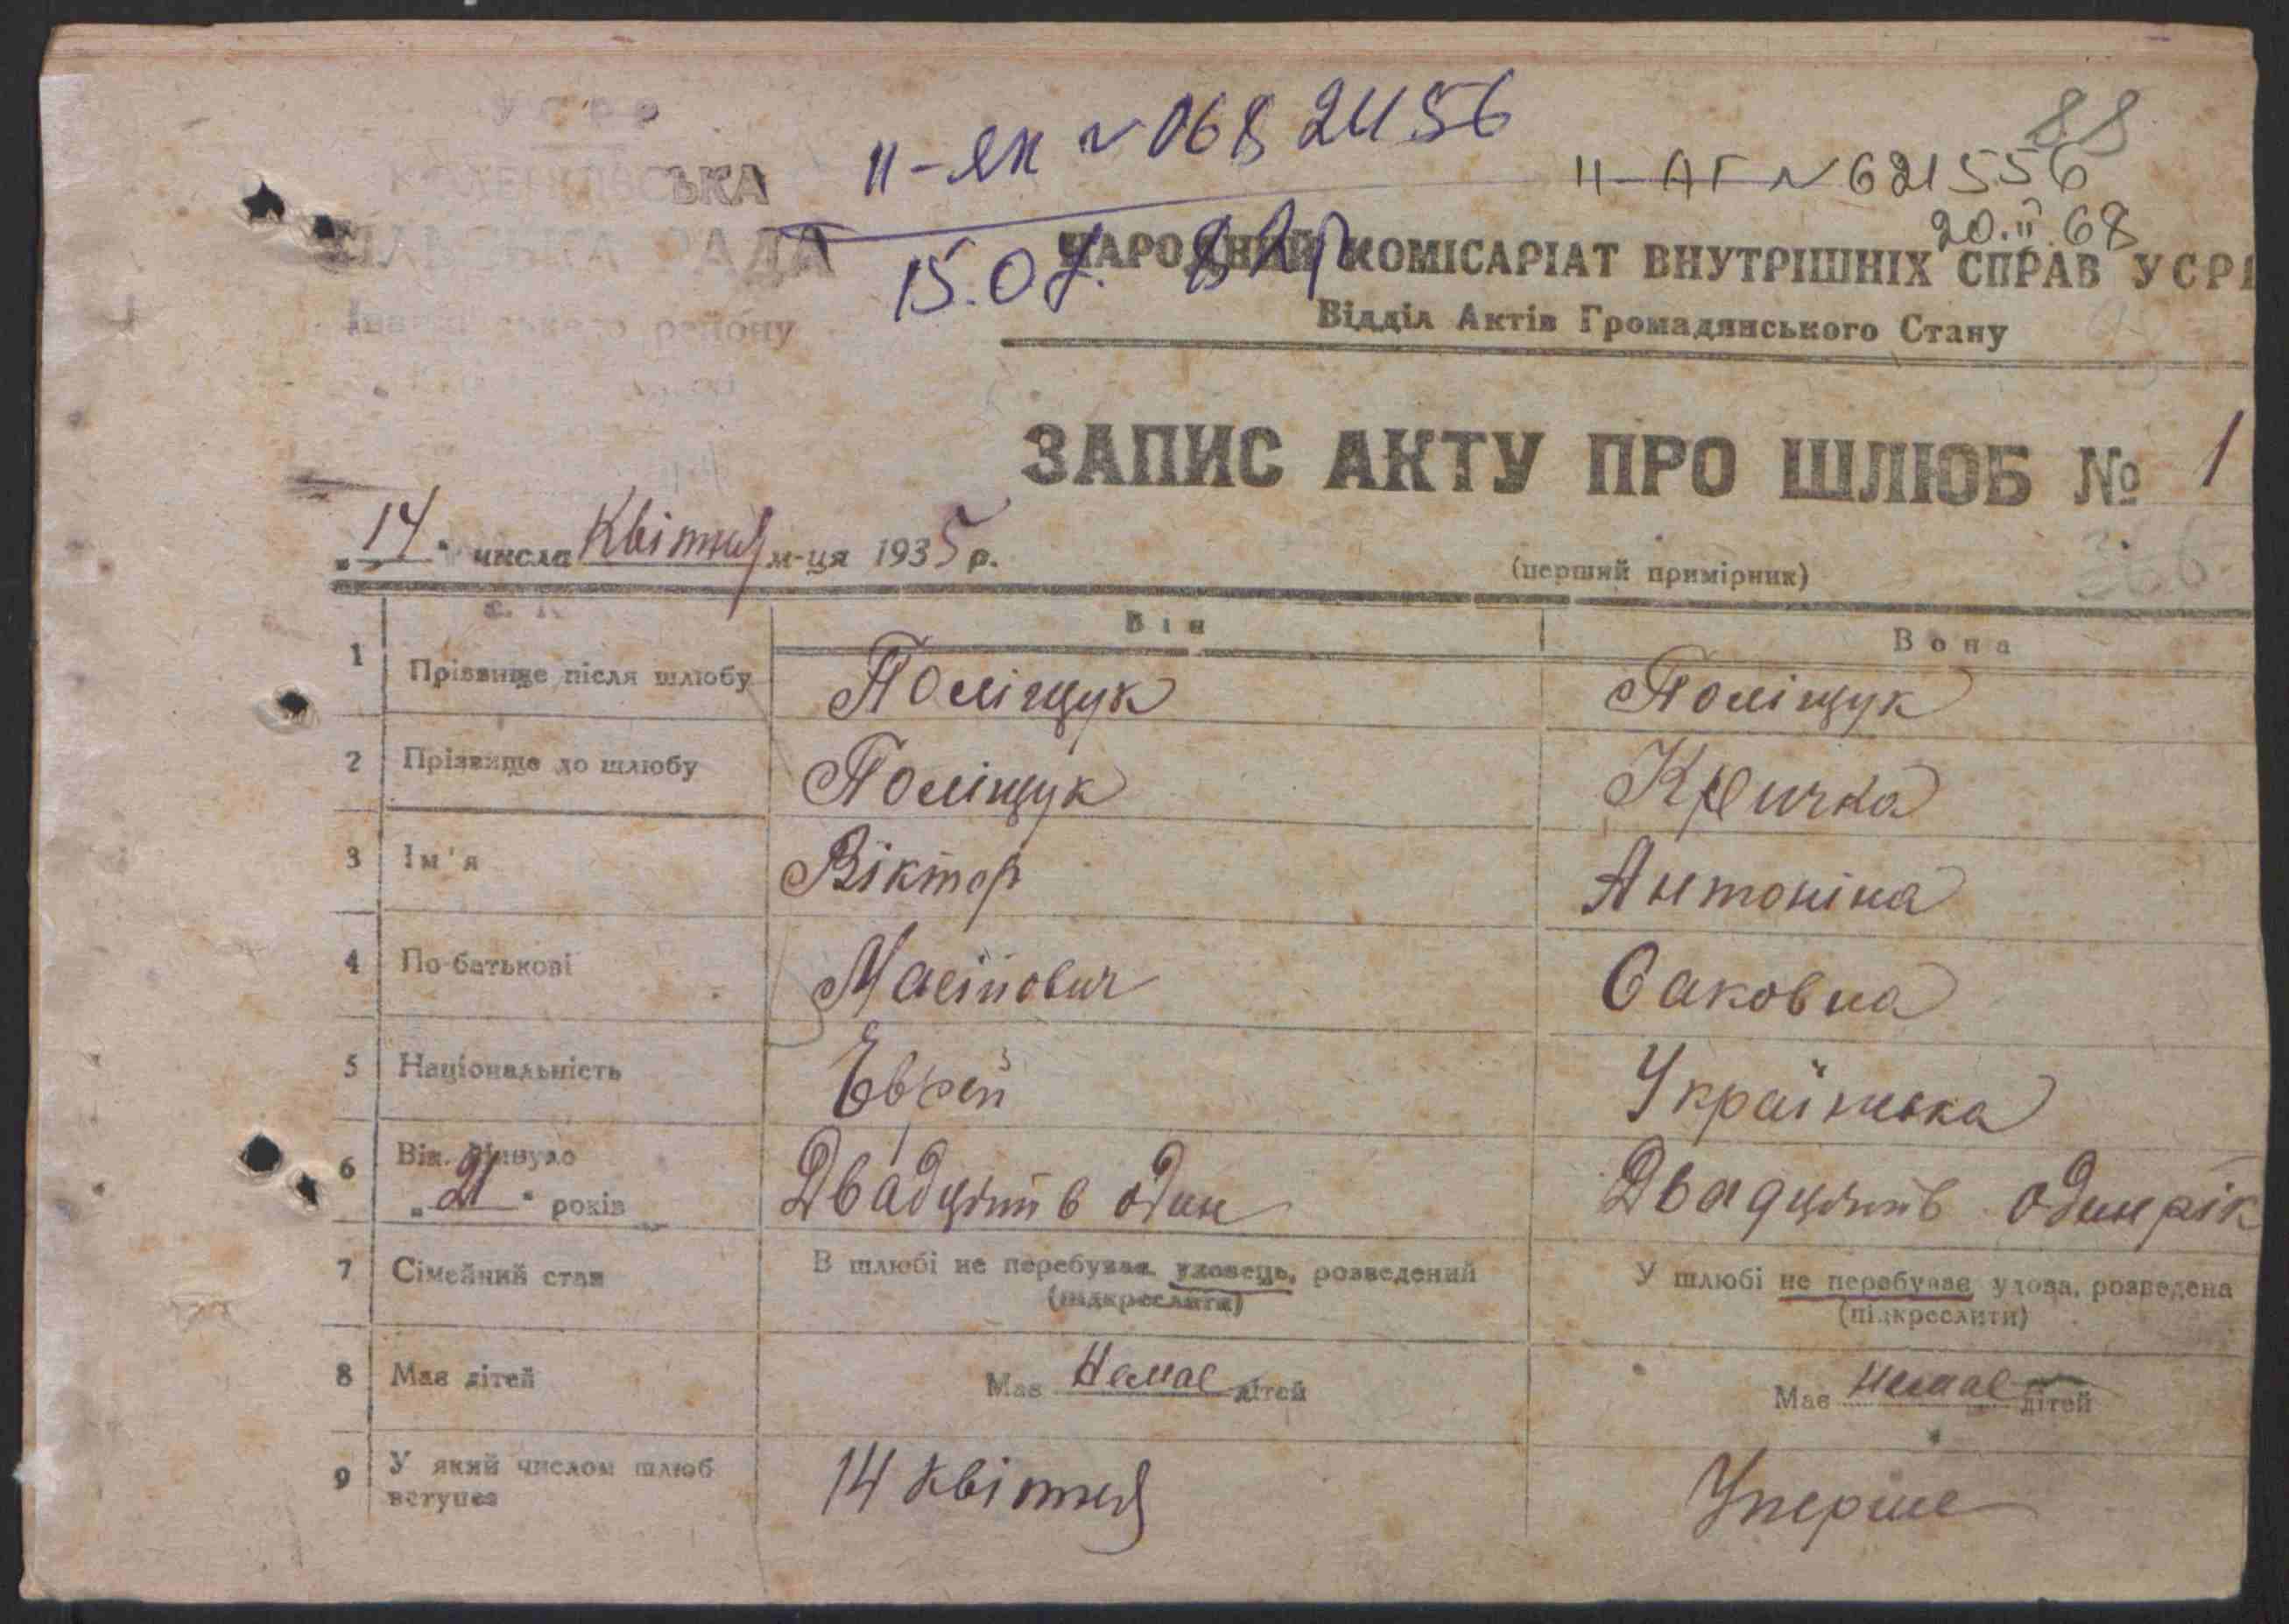 УСРР
СЬКА
РАДА
району
II-ЯК № 0682456
15.07. 82р
88
II-АГ № 621556
20.II.68
НАРОДНИЙ КОМІСАРІАТ ВНУТРІШНІХ СПРАВ УСРР
Відділ Актів Громадянського Стану
ЗАПИС АКТУ ПРО ШЛЮБ № 1
„14" числа Квітня м-ця 1935 р.
(перший примірник)
Він Вона
1 Прізвище після шлюбу Поліщук Поліщук
2 Прізвище до шлюбу Поліщук Кричка
3 Ім'я Віктор Антоніна
4 По-батькові Саковна
5 Національність Еврей Українка
6 Вік. Минуло
„21" років Двадцять один Двадцять один рік
7 Сімейний стан В шлюбі не перебував удовець, розведений У шлюбі не перебувае удова, розведена
(підкреслити) (підкреслити)
8 Мае дітей Мае Немае дітей Мае Немае дітей
9 У який числом шлюб 14 квітня Уперше
вступев